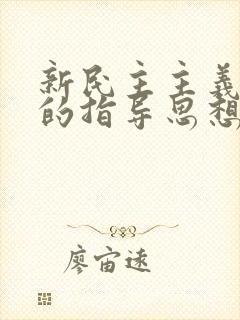 新民主主義
的指导思想
廖宙逺